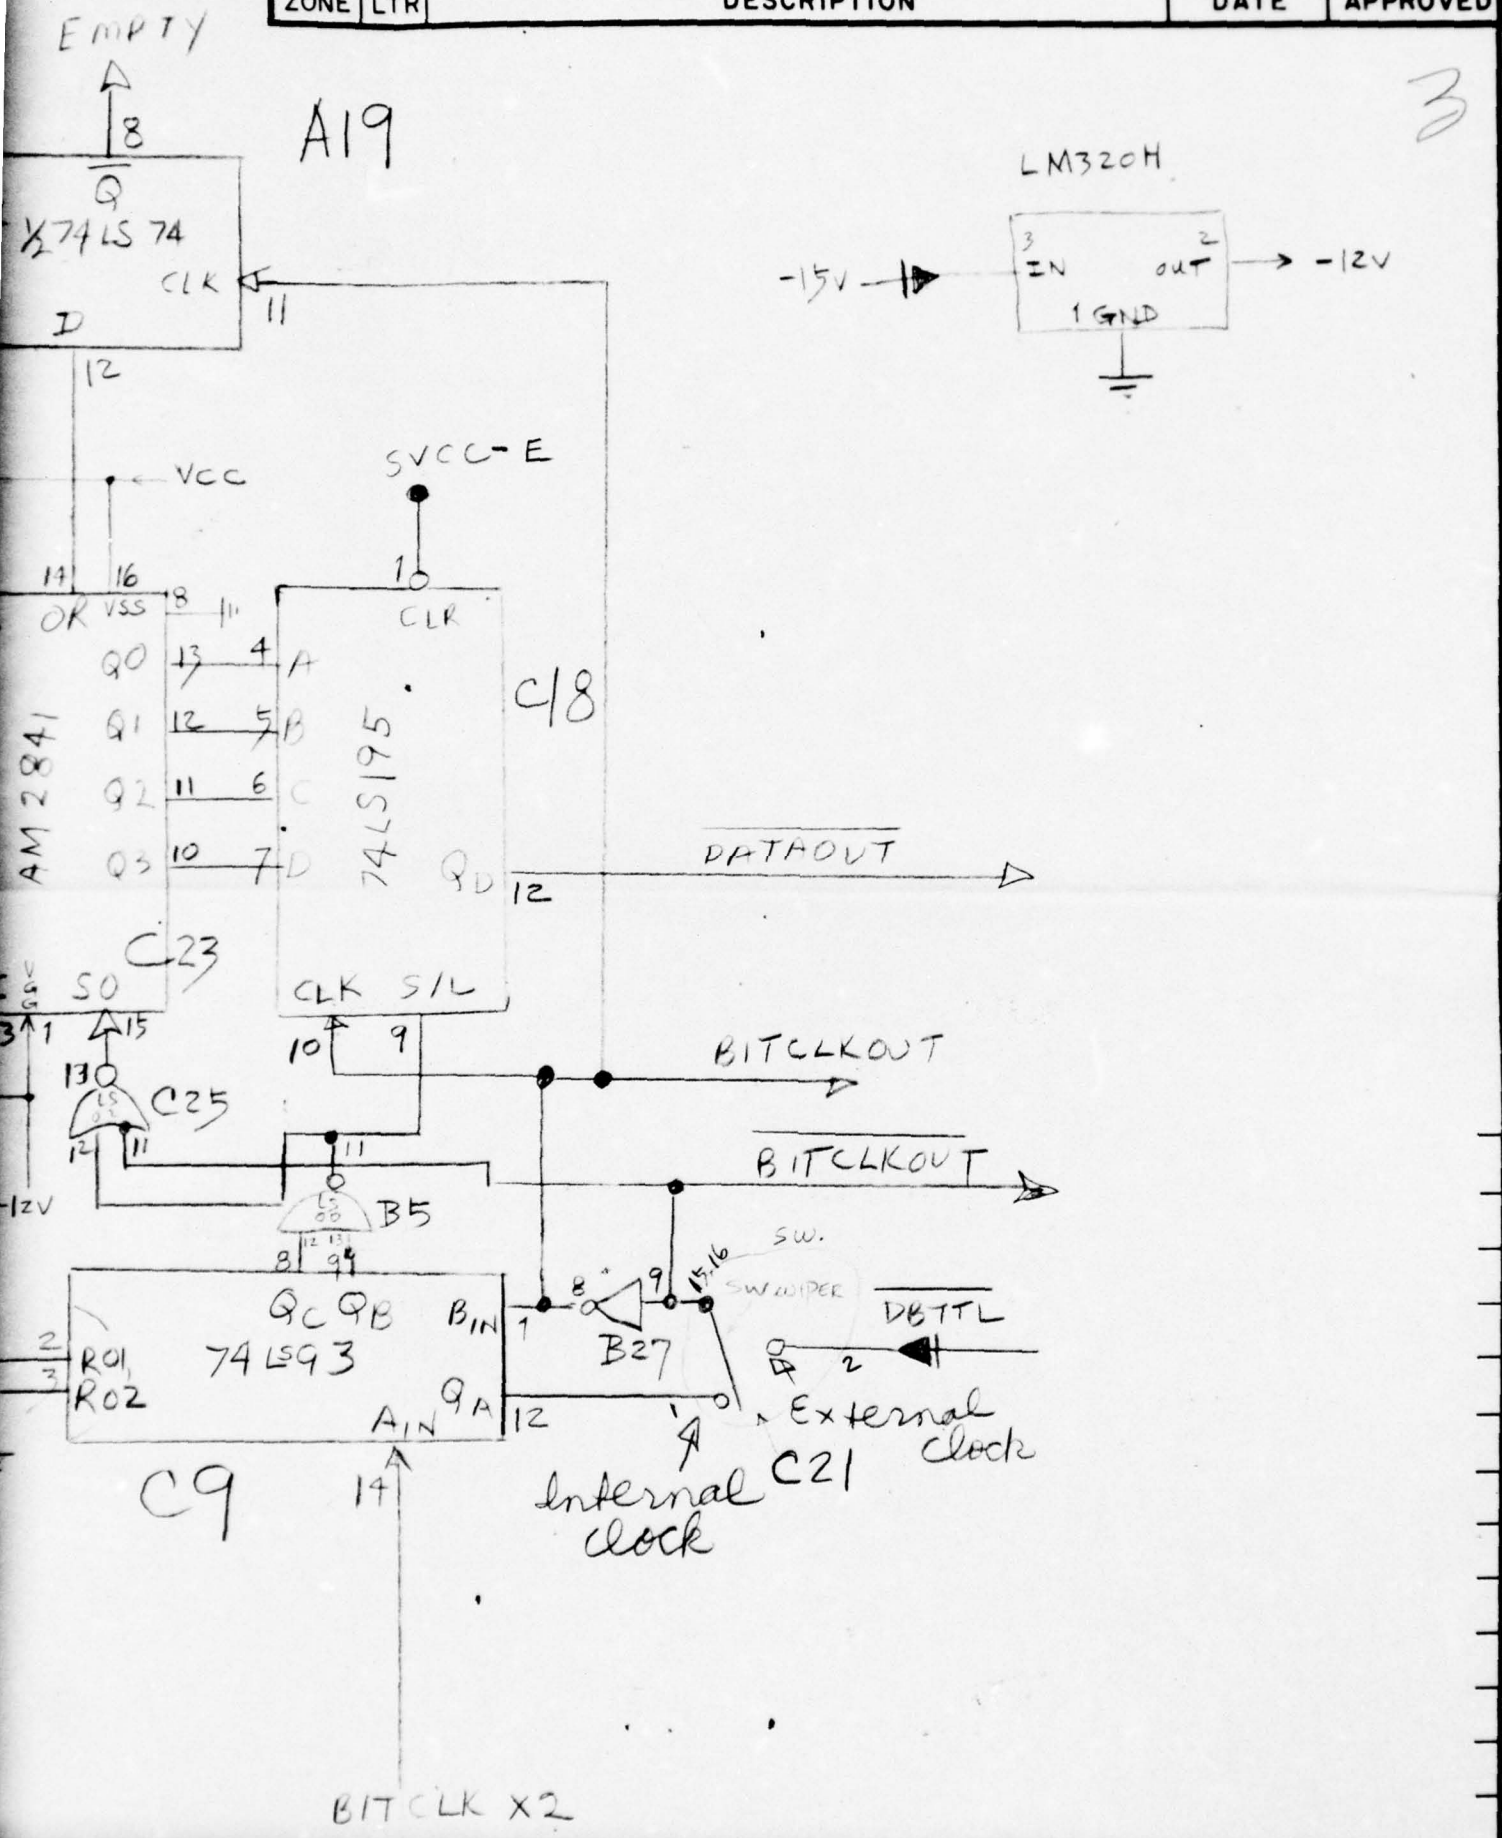 ZONE LTR DESCRIPTION DATE APPROVED
EMPTY
3
8
A19
Q̅
½74LS74
CLK
11
D
12
LM320H
3 2
-15V IN OUT -12V
1 GND
VCC
5VCC-E
14 16 8
OR VSS
1
CLR
Q0 13 4 A
Q1 12 5 B
Q2 11 6 C
Q3 10 7 D
AM2841
74LS195
C18
QD 12
D̅A̅T̅A̅O̅U̅T̅
C23
SO
CLK S/L
3 1 15
10 9
BITCLKOUT
13
LS
C25
12 11
11
B̅I̅T̅C̅L̅K̅O̅U̅T̅
-12V
B5
12 13
8 9
SW.
15,16
SW WIPER
QC QB
BIN 1
8 9
B27
D̅B̅T̅T̅L̅
2
2 R01
3 R02
74LS93
QA 12
AIN
1
External
Clock
C21
Internal
Clock
C9
14
BITCLK X2